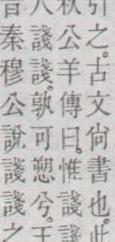 引之。古文尚書也。此
秋公羊傳曰。惟諓諓
人諓諓。孰可愬兮。王
昔秦穆公說諓諓之